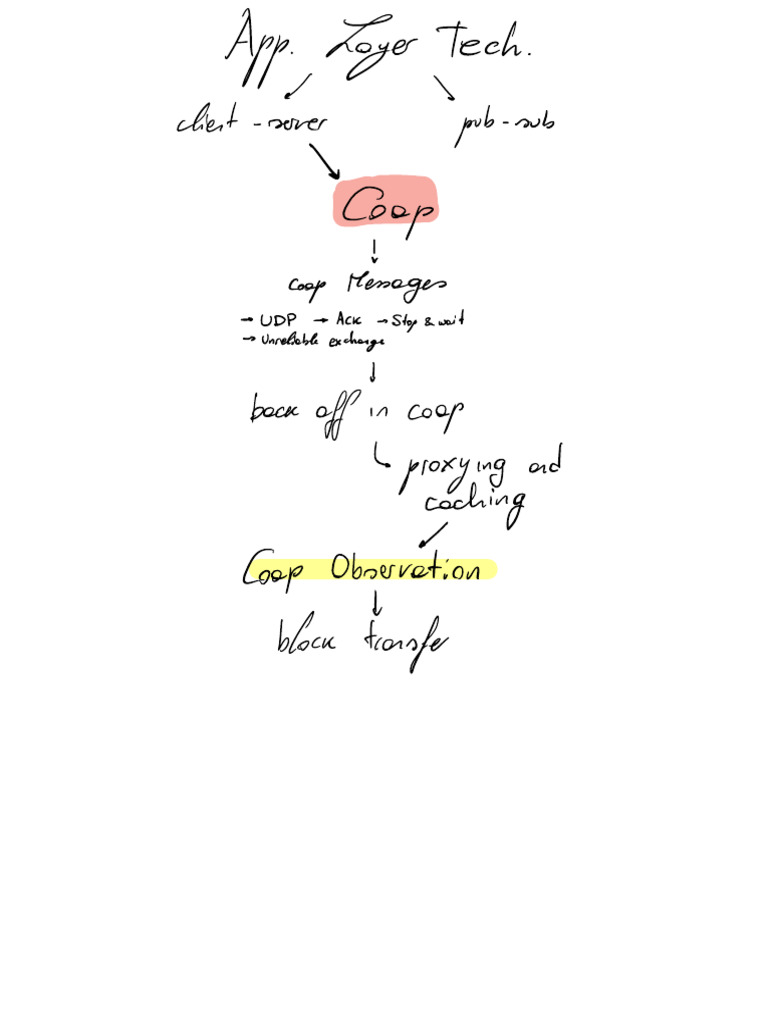 App. Layer Tech.
client-server pub-sub
Coap
Coap Messages
→ UDP → Ack → Stop & wait
→ Unreliable exchange
back off in coap
proxying and
caching
Coap Observation
block transfer